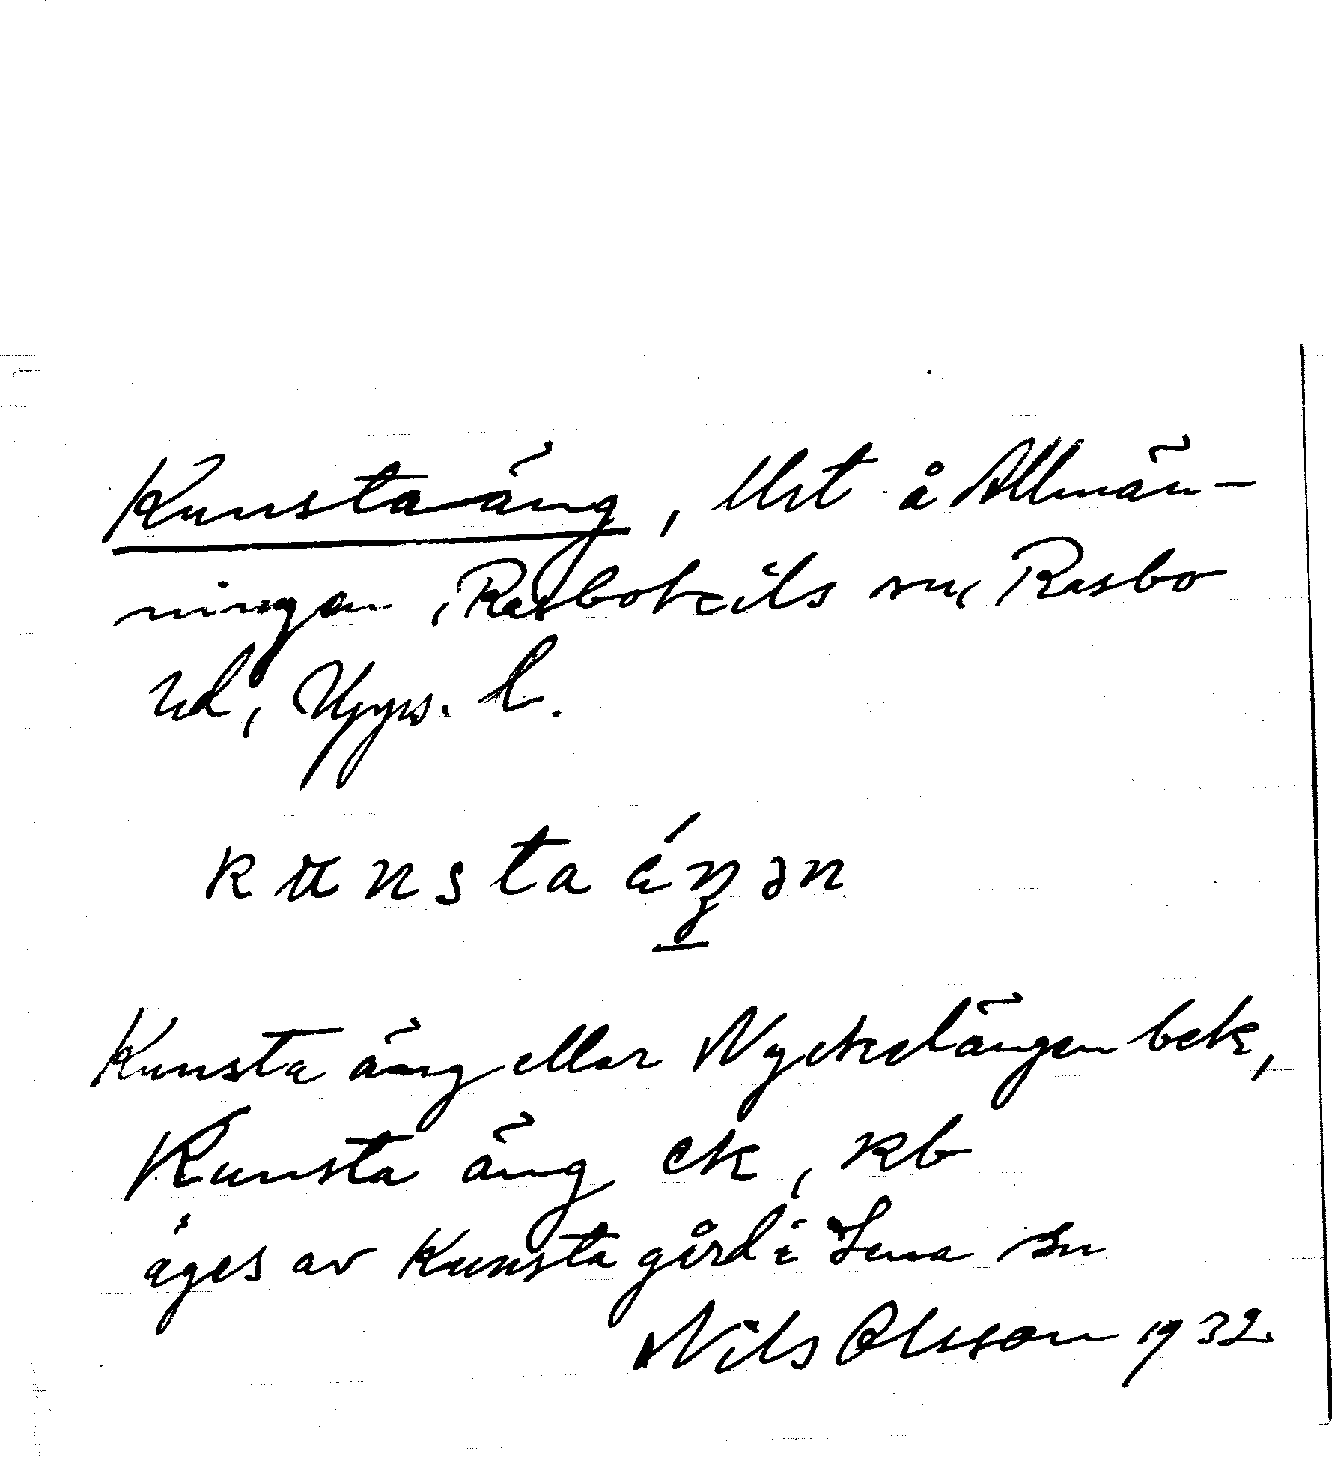 Kunsta äng, Urt å Allmän-
ningen, Rasbokils sn, Rasbo
hd, Upps. l.
kunsta ä́ŋən
Kunsta äng eller Nyckelängen bek,
Kunsta äng ek, kb
äges av Kunsta gård i Lena sn
Nils Olsson 1932.